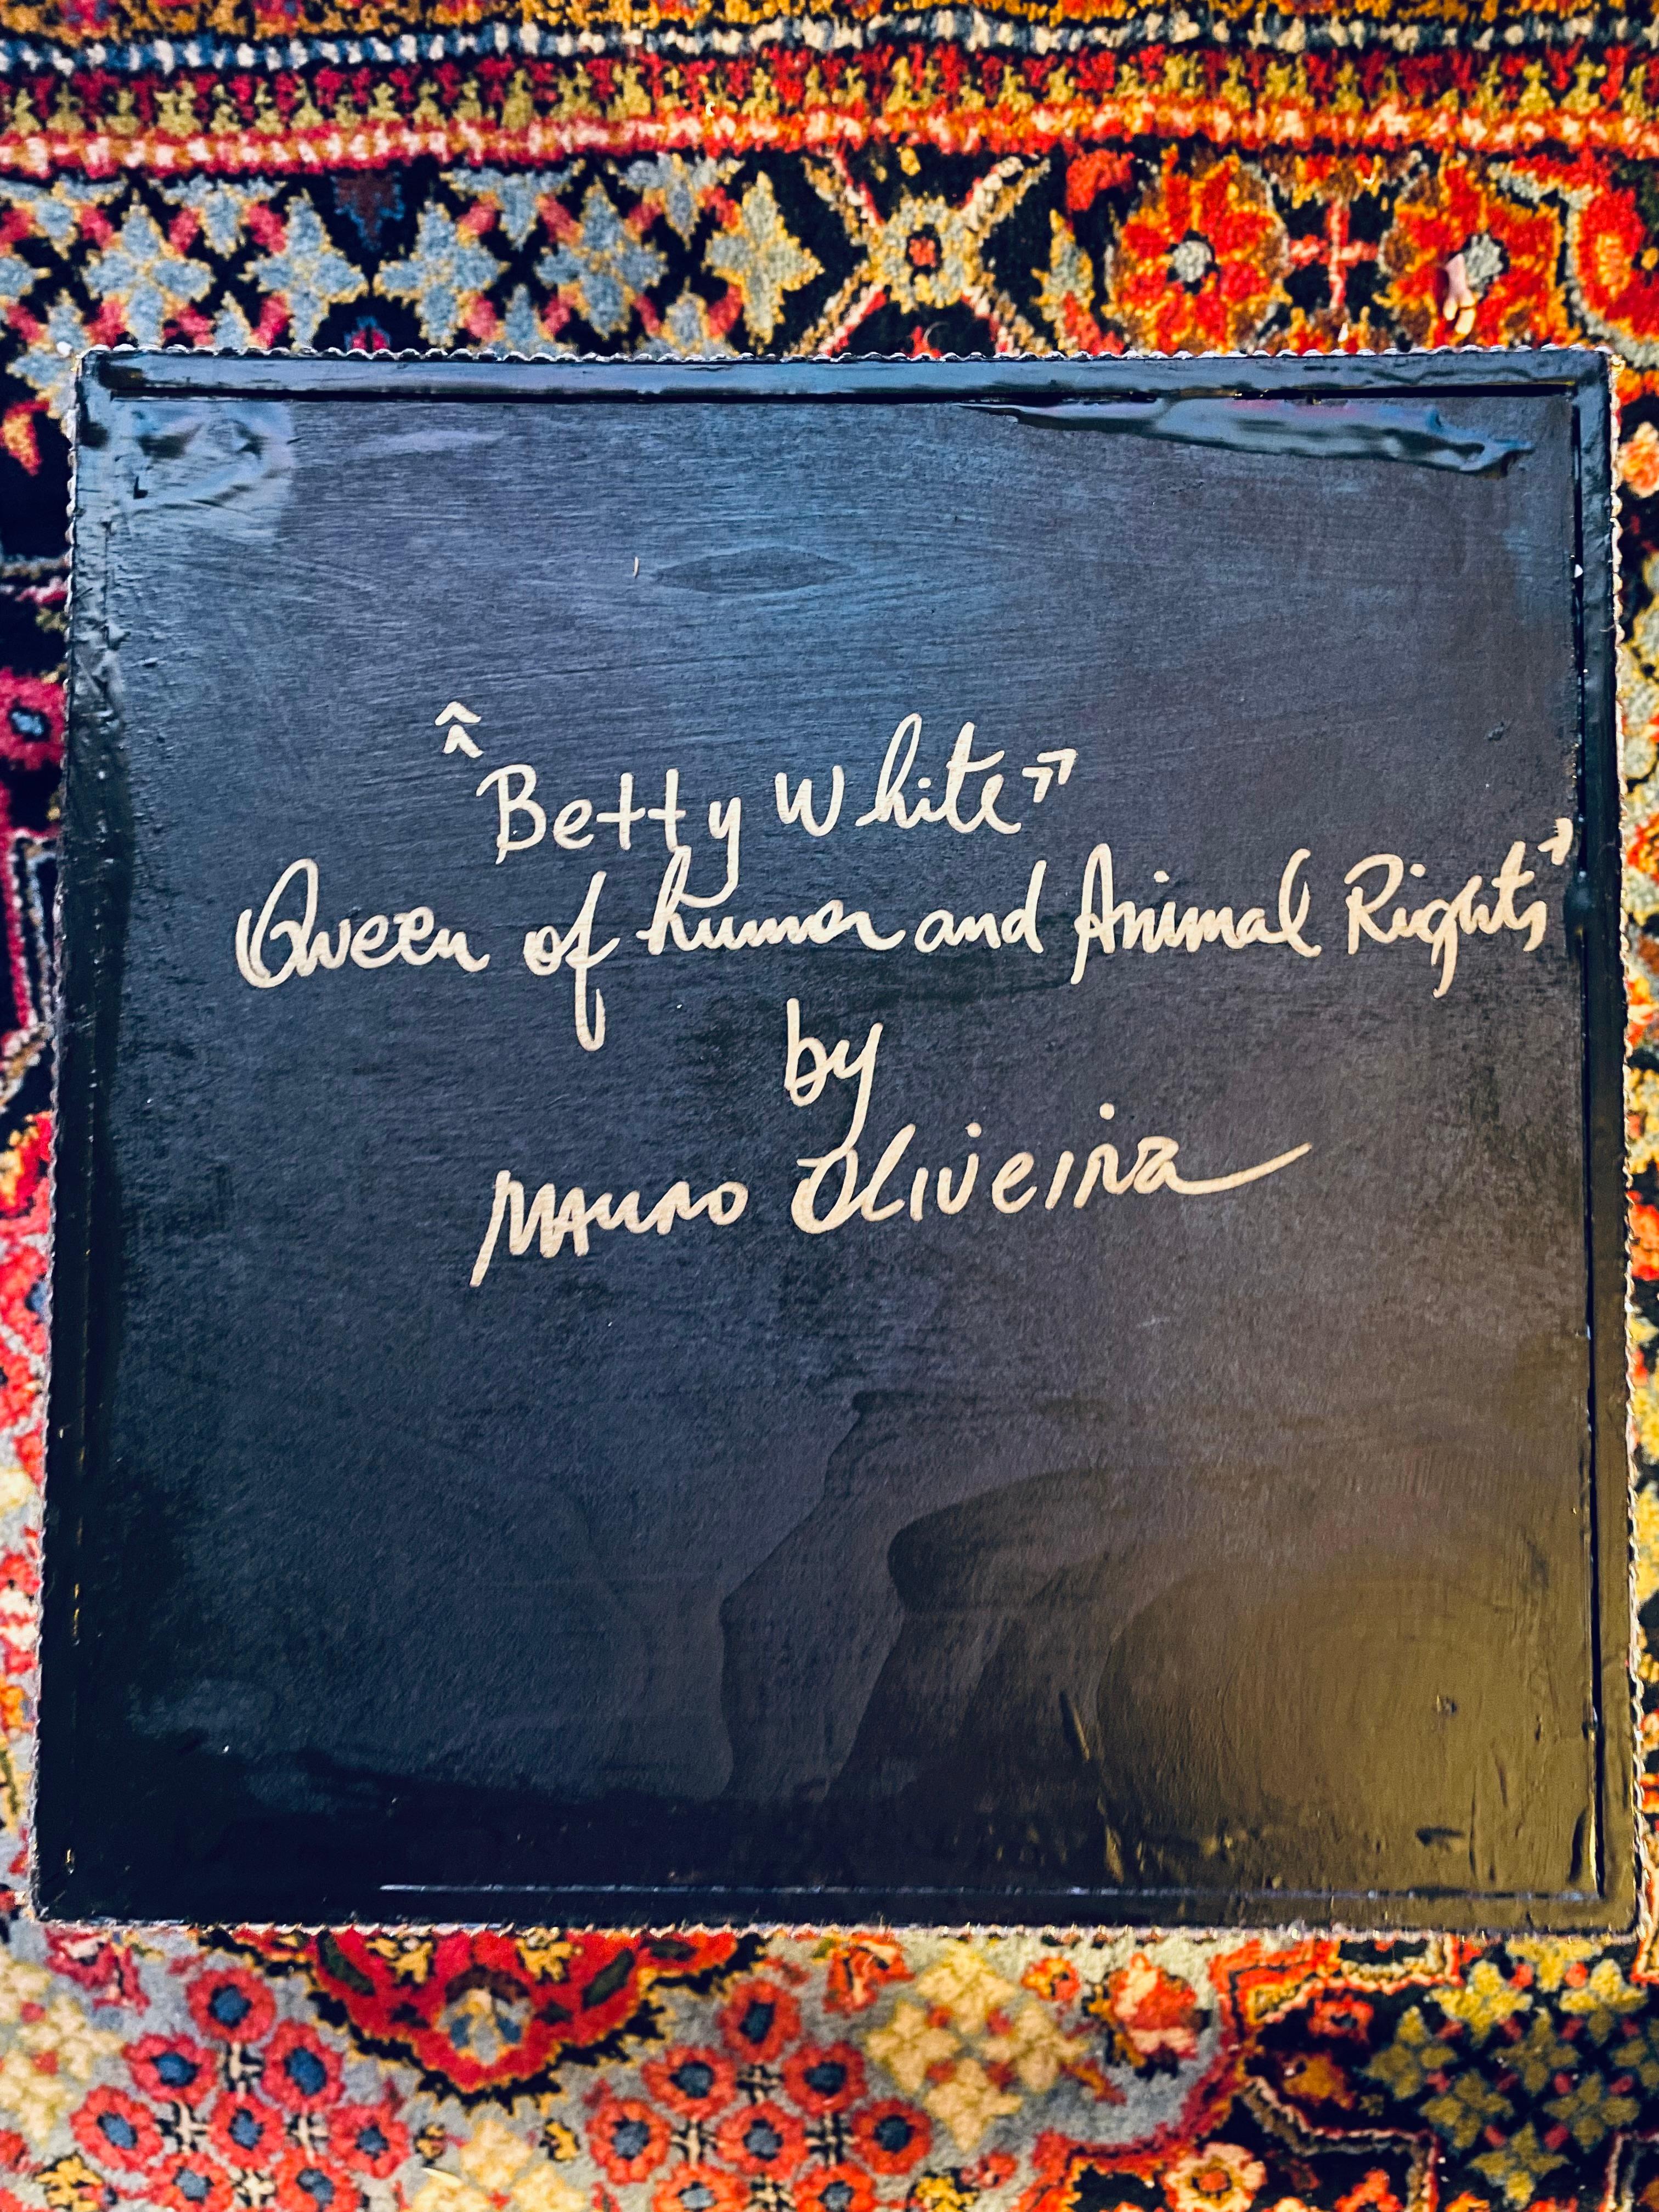 "Betty White"
Queen of humor and Animal Rights"
by
Mauro Oliveira